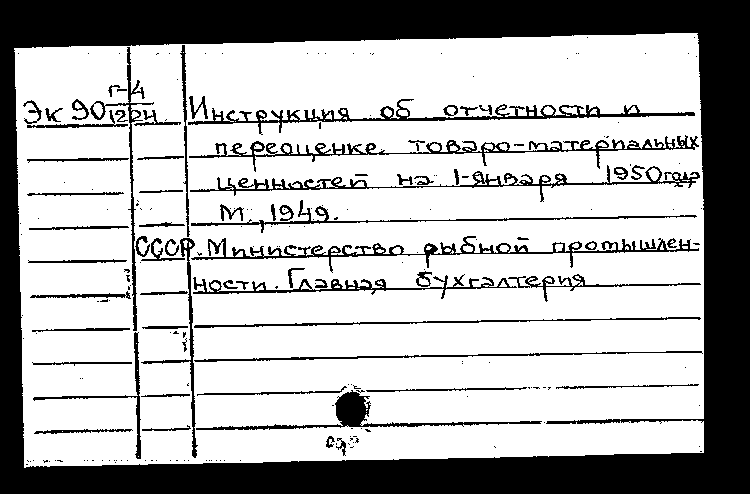 Г-4
Эк 90 1224 Инструкция об отчетности и
переоценке товаро-материальных
ценностей на 1-января 1950 года
М., 1949.
СССР. Министерство рыбной промышлен-
ности. Главная бухгалтерия.